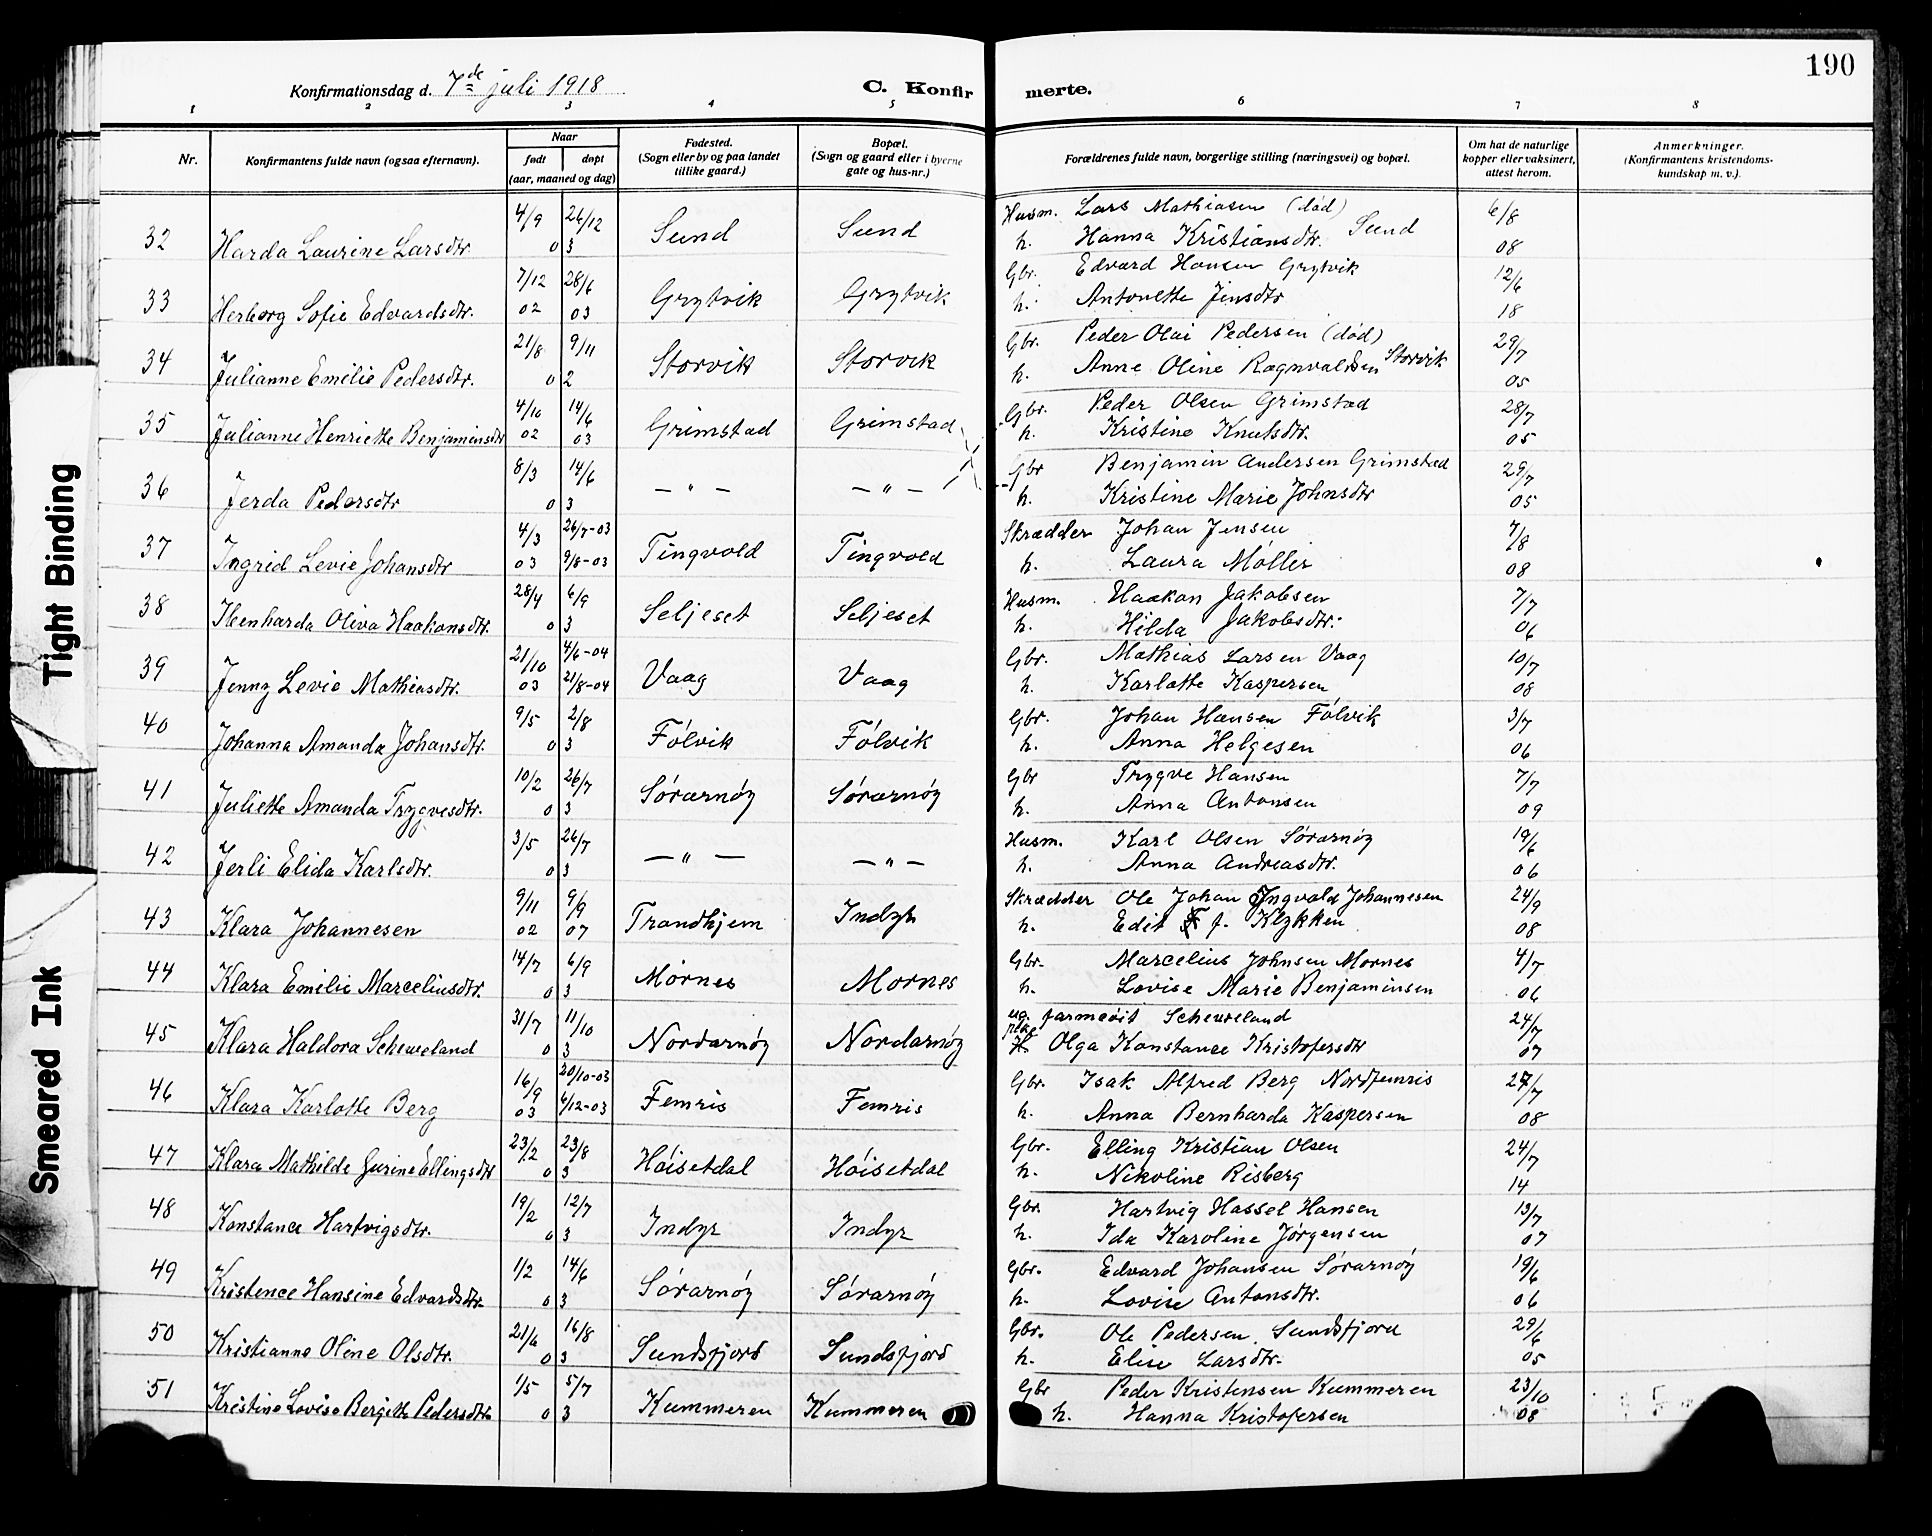 190
Konfirmationsdag d. 7de juli 1918
C. Konfirmerte.
1 2 3 4 5 6 7 8
Nr.
Konfirmantens fulde navn (ogsaa efternavn).
Naar
født døpt
(aar, maaned og dag)
Fødested.
(Sogn eller by og paa landet
tillike gaard.)
Bopæl.
(Sogn og gaard eller i byerne
gate og hus-nr.)
Forældrenes fulde navn, borgerlige stilling (næringsvei) og bopæl.
Om hat de naturlige
kopper eller vaksinert,
attest herom.
Anmerkninger.
(Konfirmantens kristendoms-
kundskap m. v.).
4/9 26/12 Husm. Lars Mathiasen (død) 6/8
32 Harda Laurine Larsdtr. 03 Sund Sund h. Hanna Kristiansdtr. Sund 08
7/12 28/6 Gbr. Edvard Hansen Grytvik 12/6
33 Herborg Sofie Edvardsdtr. 02 03 Grytvik Grytvik h. Antonette Jensdtr 18
21/8 9/11 Gbr. Peder Olai Pedersen (død) 29/7
34 Julianne Emilie Pedersdtr. 02 Storvik Storvik h. Anne Oline Ragnvaldsen Storvik 05
4/10 14/6 Gbr. Peder Olsen Grimstad 28/7
35 Julianne Henriette Benjaminsdtr 02 03 Grimstad Grimstad h. Kristine Knutsdtr. 05
8/3 14/6 Gbr Benjamin Andersen Grimstad 29/7
36 Jerda Pedersdtr 03 — " — — " — h. Kristine Marie Johnsdtr 05
4/3 26/7-03 Skrædder Johan Jensen 7/8
37 Ingrid Levie Johansdtr 03 9/8-03 Tingvold Tingvold h. Laura Møller 08
28/4 6/9 Husm. Haakon Jakobsen 7/7
38 Ibenharda Oliva Haakonsdtr. 03 Seljeset Seljeset h. Hilda Jakobsdtr. 06
21/10 4/6-04 Gbr. Mathias Larsen Vaag 10/7
39 Jenny Levie Mathiasdtr. 03 21/8-04 Vaag Vaag h. Karlotte Kaspersen 08
9/5 2/8 Gbr. Johan Hansen Følvik 3/7
40 Johanna Amanda Johansdtr. 03 Følvik Følvik h. Anna Helgesen 06
10/2 26/7 Gbr Trygve Hansen 7/7
41 Juliette Amanda Trygvesdtr. 03 Sørarnøy Sørarnøy h. Anna Antonsen 09
3/5 26/7 Husm. Karl Olsen Sørarnøy 19/6
42 Jerli Elida Karlsdtr. 03 — " — — " — h. Anna Andreasdtr. 06
9/11 9/9 Skrædder Ole Johan Ingvald Johannesen 24/9
43 Klara Johannesen 02 07 Trondhjem Indyr h. Edit f. Klykken 08
14/7 6/9 Gbr. Marcelius Johnsen Mørnes 4/7
44 Klara Emilie Marceliusdtr. 03 Mørnes Mørnes h. Lovise Marie Benjaminsen 06
31/7 11/10 ug. farmcøit Scheveland 24/7
45 Klara Haldora Scheveland 03 Nordarnøy Nordarnøy pike Olga Konstance Kristofersdtr 07
16/9 20/10-03 Gbr. Isak Alfred Berg Nordfemris 27/7
46 Klara Karlotte Berg 03 4/12-03 Femris Femris h. Anna Bernharda Kaspersen 08
23/2 23/8 Gbr. Elling Kristian Olsen 24/7
47 Klara Mathilde Jurine Ellingsdtr 03 Høisetdal Høisetdal h. Nikoline Risberg 14
19/2 12/7 Gbr. Hartvig Hassel Hansen 13/7
48 Konstance Hartvigsdtr. 03 Indyr Indyr h. Ida Karoline Jørgensen 07
1/2 14/6 Gbr. Edvard Johansen Sørarnøy 19/6
49 Kristence Hansine Edvardsdtr. 03 Sørarnøy Sørarnøy h. Lovise Antonsdtr. 06
21/6 16/8 Gbr. Ole Pedersen Sundsfjord 29/6
50 Kristianne Oline Olsdtr. 03 Sundsfjord Sundsfjord h. Elise Larsdtr. 05
1/5 5/7 Gbr Peder Kristensen Kummeren 23/10
51 Kristine Lovise Bergitte Pedersdtr 03 Kummeren Kummeren h. Hanna Kristofersen 08
Tight Binding
Smeared Ink